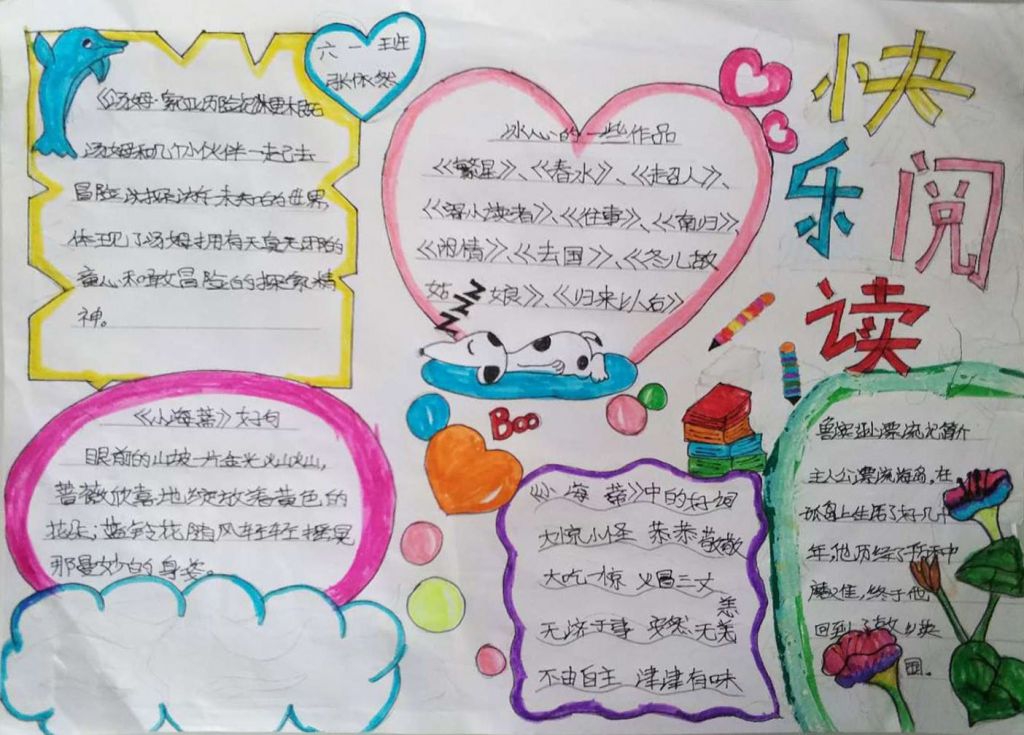 快
乐
阅
读
六一班
张依然
《汤姆·索亚历险记》梗概
汤姆和几个小伙伴一起去
冒险
未知的世界,
体现了汤姆拥有天真无邪的
童心和敢冒险的探索精
神。
冰心的一些作品
《繁星》、《春水》、《超人》、
《寄小读者》、《往事》、《南归》、
《闲情》、《去国》、《冬儿故
姑娘》、《归来以后》
ZZZ
Boo
《小海蒂》好句
眼前的山坡一片金光灿灿,
蔷薇欣喜地绽放着黄色的
花朵;蓝铃花随风轻轻摇晃
那曼妙的身姿。
《小海蒂》中的好词
大惊小怪 恭恭敬敬
大吃一惊 火冒三丈
无济于事 安然无恙
恙
不由自主 津津有味
鲁宾逊漂流记简介
主人公漂流海岛,在
孤岛上生活了好几十
年,他历经了
磨难,终于他
回到了故乡英
国。